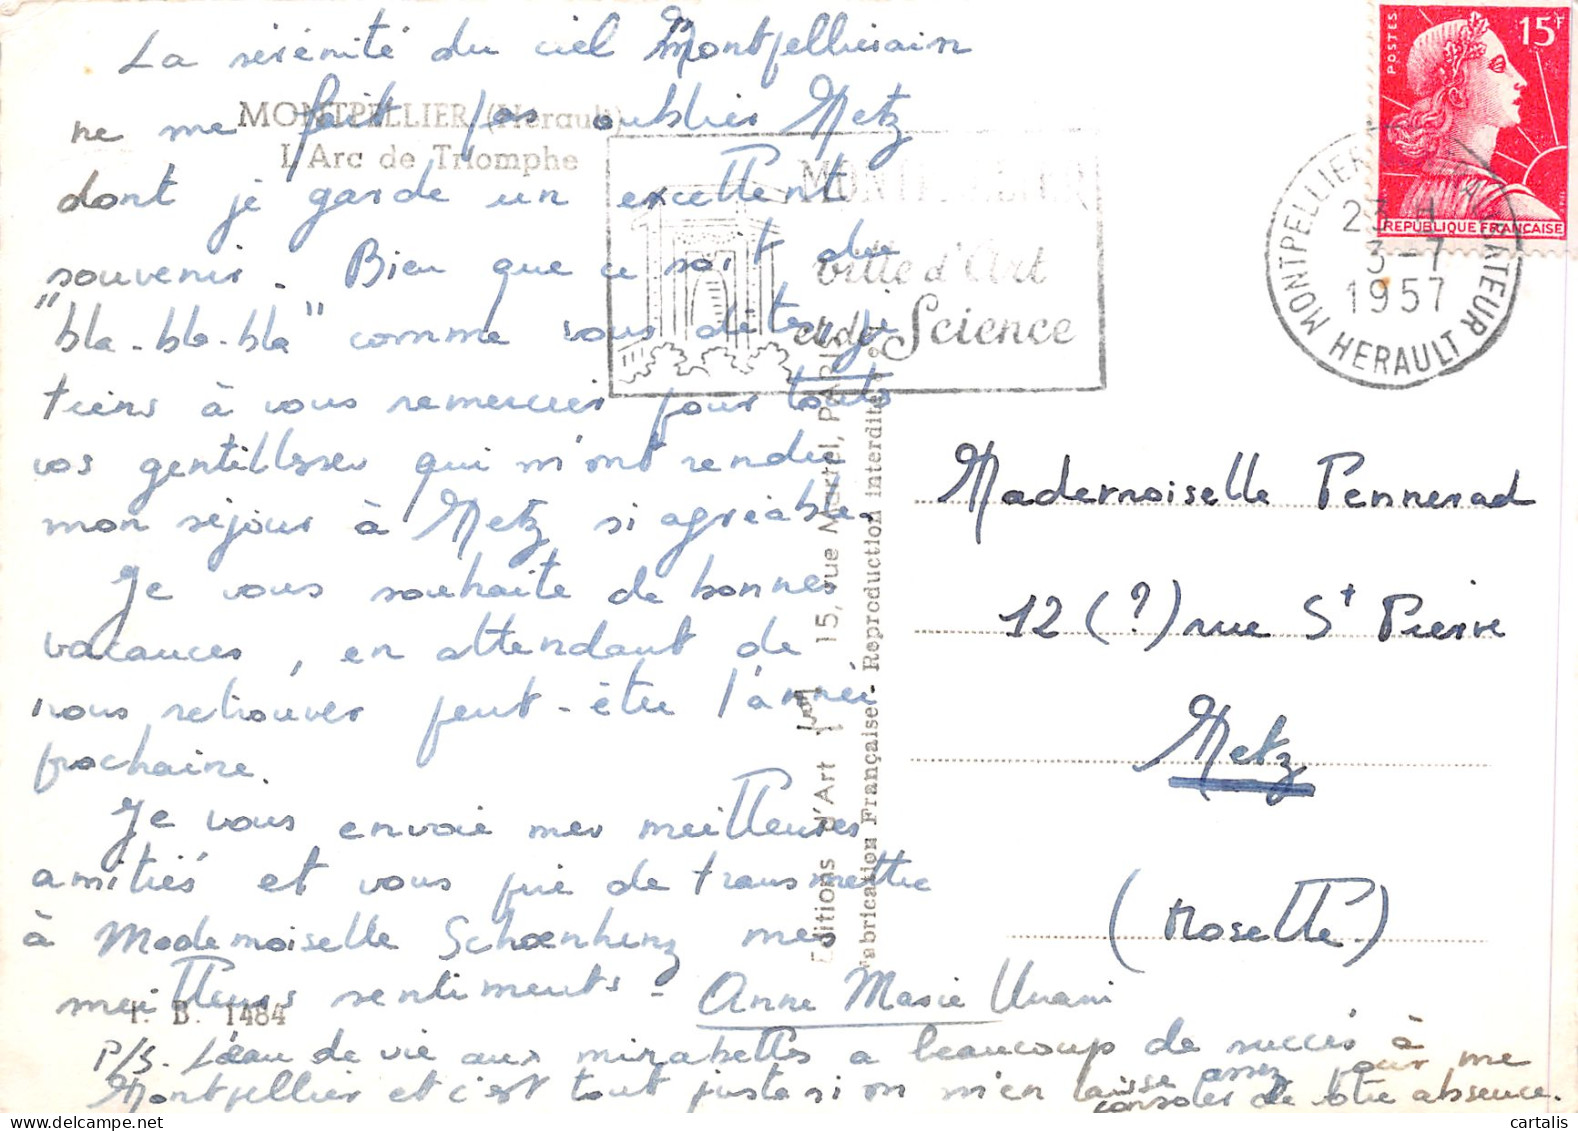 La sérénité du ciel Montpelliérain
ne me fait pas oublier Metz
dont je garde un excellent
souvenir. Bien que ce soit du
"bla-bla-bla" comme vous dites, je
tiens à vous remercier pour toutes
vos gentillesses qui m'ont rendu
mon séjour à Metz si agréable.
Je vous souhaite de bonnes
vacances, en attendant de
nous retrouver peut-être l'année
prochaine.
Je vous envoie mes meilleures
amitiés et vous prie de transmettre
à Mademoiselle Schoenhenz mes
meilleurs sentiments - Anne Marie
P/S. L'eau de vie aux mirabelles a beaucoup de succès à
Montpellier et c'est tout juste si on m'en laisse assez pour me
consoler de votre absence.
MONTPELLIER (Hérault)
L'Arc de Triomphe
I. B. 1484
Editions d'Art 15, rue Martel, PARIS
Fabrication Française. Reproduction interdite
MONTPELLIER
ville d'Art
et de Science
MONTPELLIER HERAULT
23 H
3-7
1957
POSTES
15F
REPUBLIQUE FRANCAISE
Mademoiselle Pennerad
12 (?) rue St Pierre
Metz
(Moselle)
cartalis